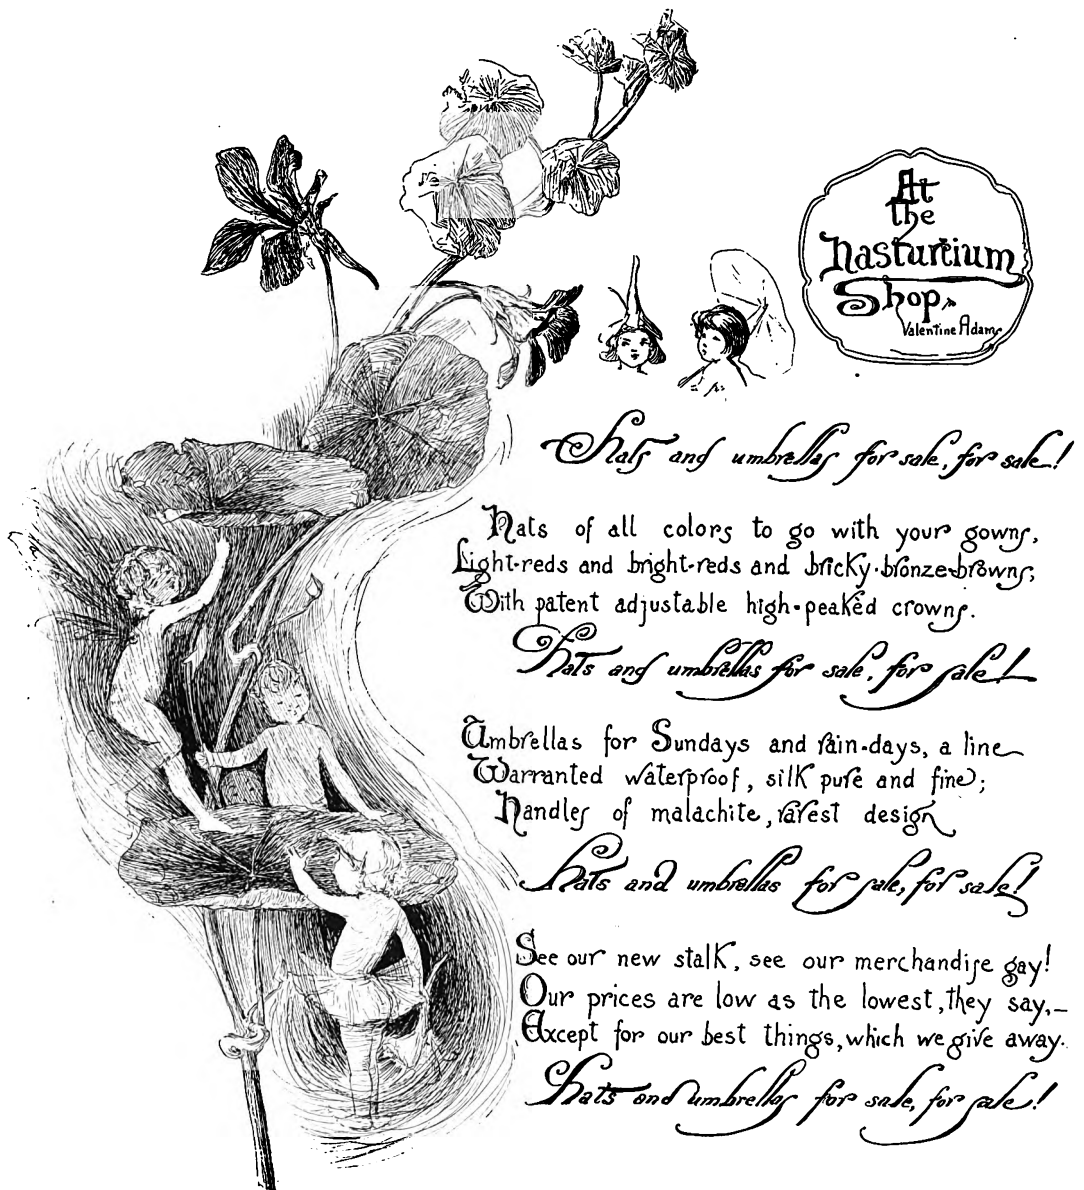 At
the
Nasturtium
Shop
Valentine Adams
Hats and umbrellas for sale, for sale!
Hats of all colors to go with your gowns,
Light-reds and bright-reds and bricky-bronze-browns;
With patent adjustable high-peakèd crowns.
Hats and umbrellas for sale, for sale!
Umbrellas for Sundays and rain-days, a line
Warranted waterproof, silk pure and fine;
Handles of malachite, rarest design
Hats and umbrellas for sale, for sale!
See our new stalk, see our merchandise gay!
Our prices are low as the lowest, they say,—
Except for our best things, which we give away.
Hats and umbrellas for sale, for sale!